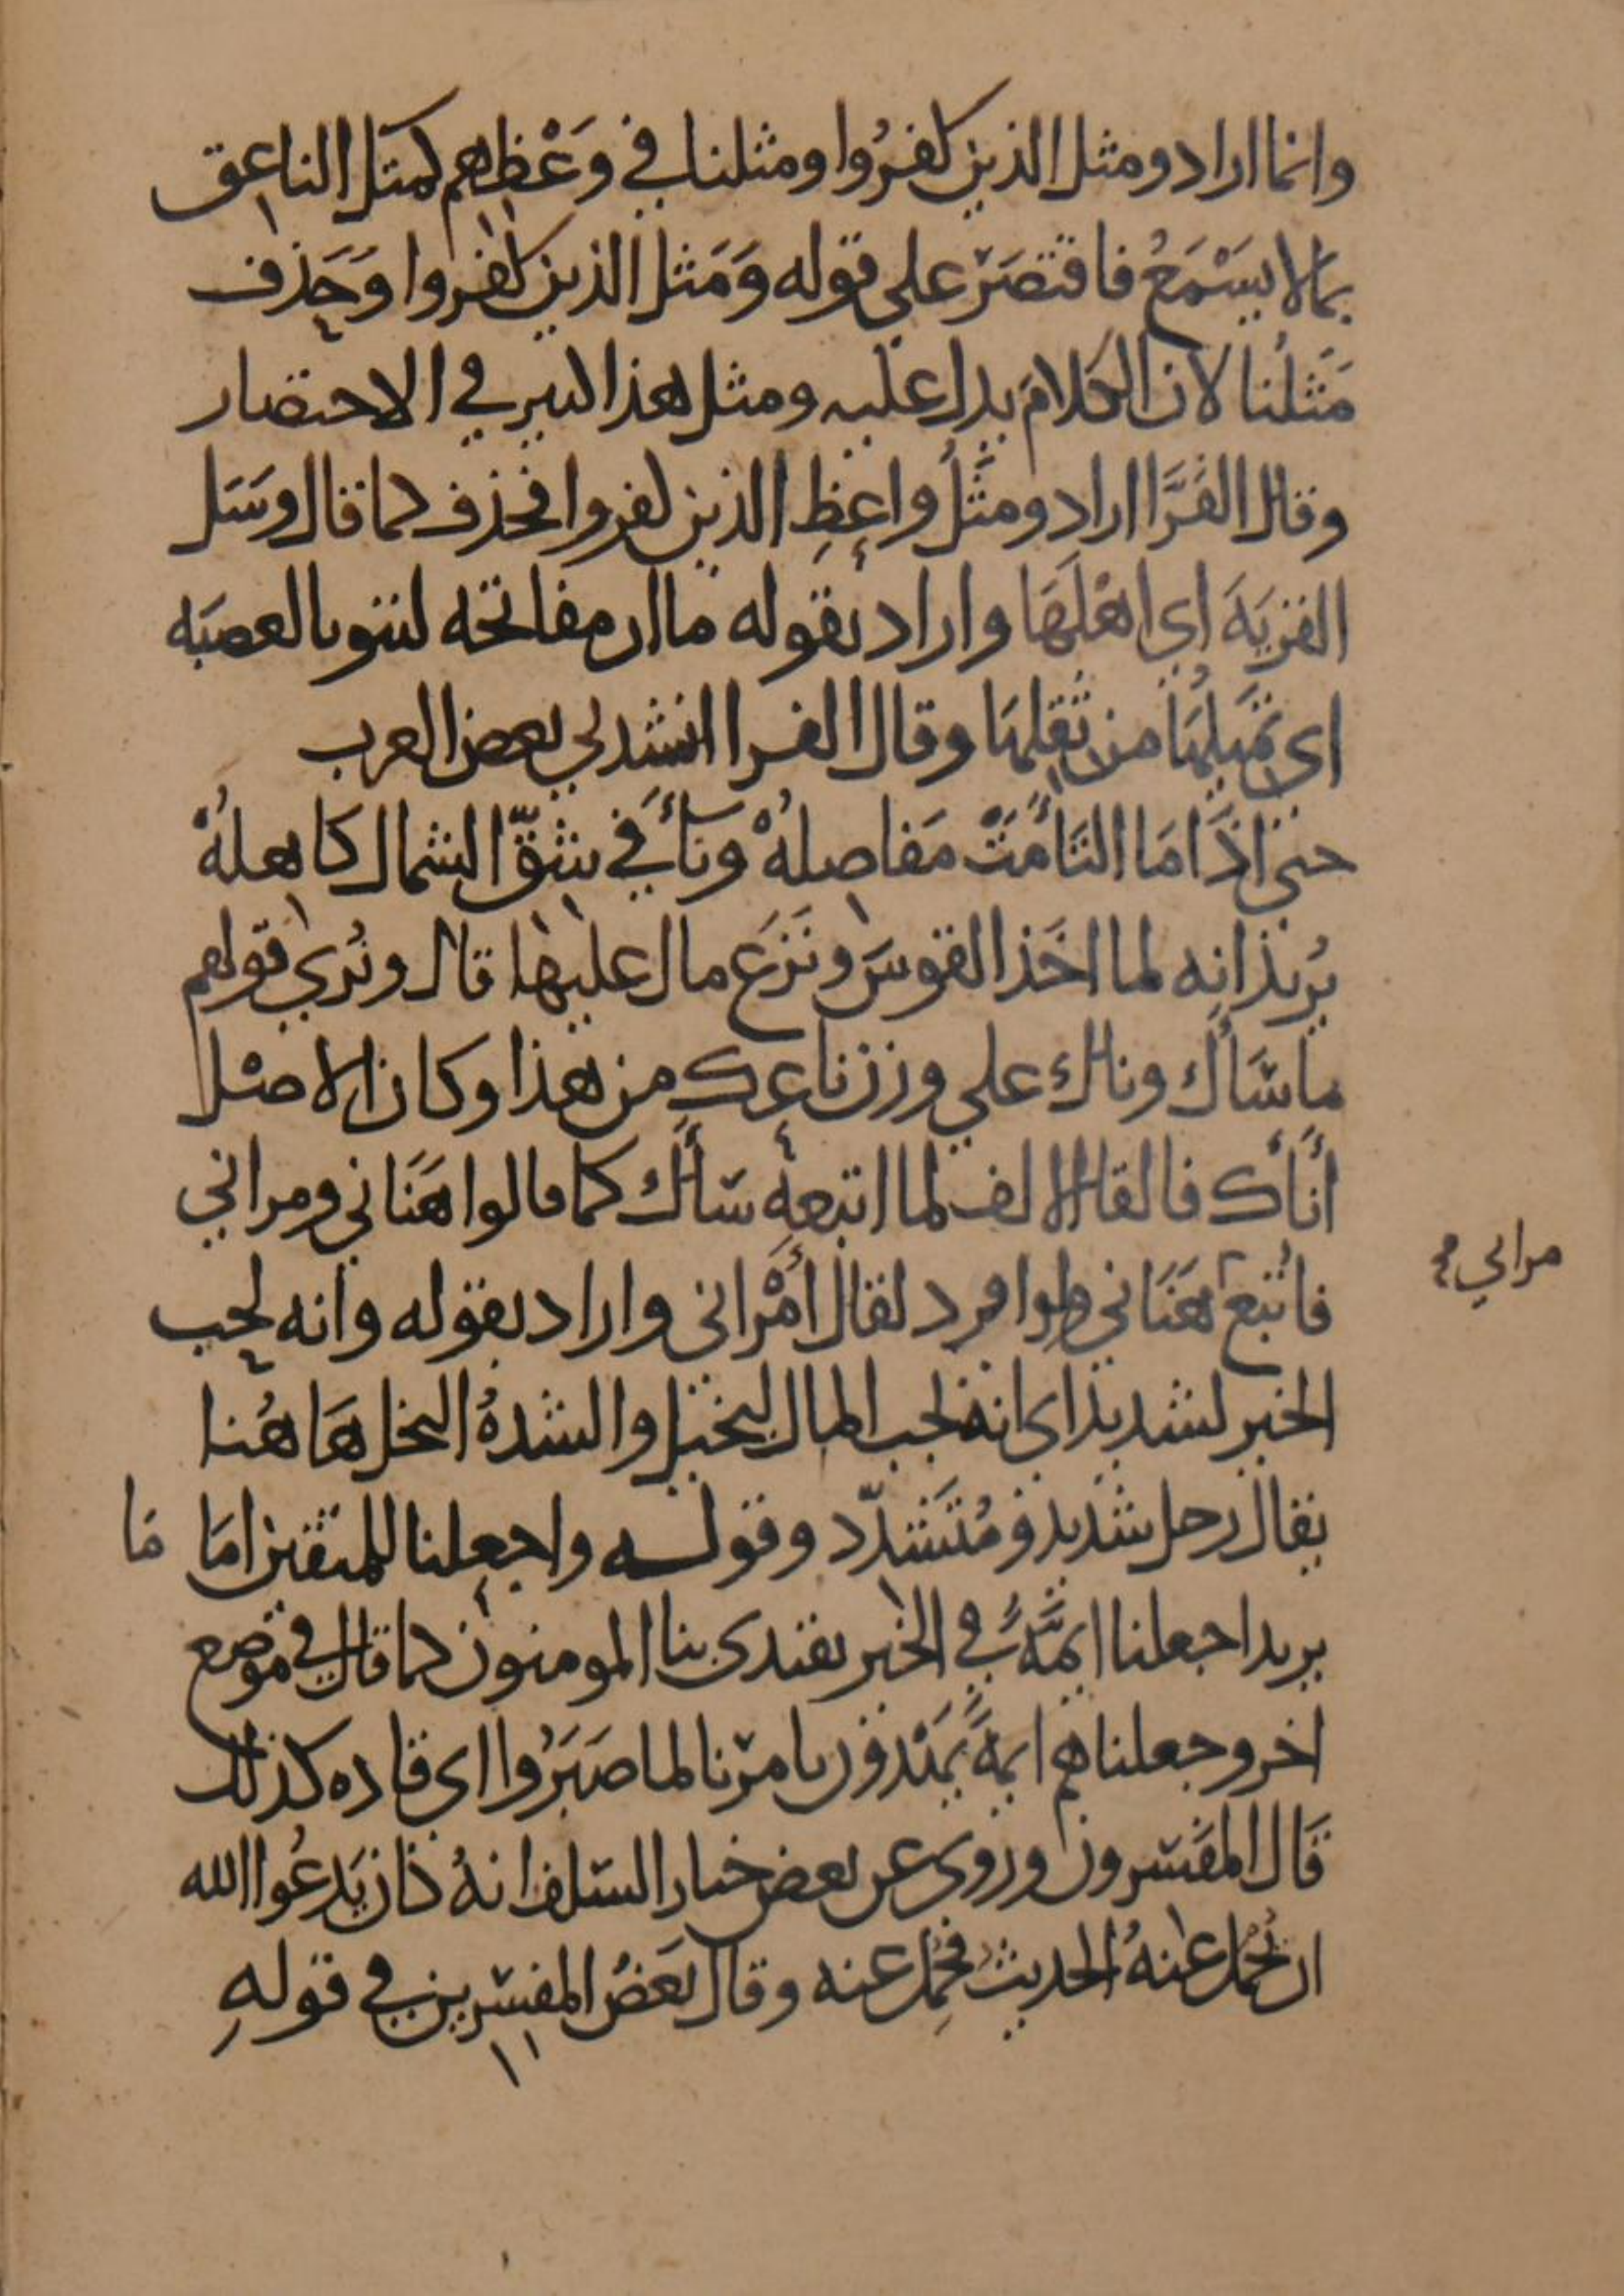 وانما اراد ومثل الذين كفرُوا ومثلنا في وَعْظِهم كمثل الناعق
بما لا يسَْمَعُ فاقتصَرَ على قوله وَمَثل الذين كفروا وَحَذف
مَثلنا لان الكلامَ يدل عليه ومثل هذا كثير في الاختصار
وقال الفَرَّا اراد ومثلُ واعِظِ الذين كفروا فحذف كما قال وسَل
القريَةَ اي اهْلَهَا واراد بقوله ما ان مفاتحه لتنو بالعصبَه
اي تُميلُهَا من ثقلهَا وقال الفرا انشدني بعض العرب
حتى اذَا مَا التَأمَتْ مَفاصلُهْ وَنَاْءَ في شقّ الشمال كاهلُهْ
يُريد انه لما اخَذ القوسَ ونَزَع مال عليها قال ونُري قولهم
ما سَاْك وناك على وزن ناعك من هذا وكان الاصل
أنَأك فالقا الالف لما اتبعه سَأك كما قالوا هَنَاني ومراني
مراني صح
فاتبعَ هَنَاني ولو افرد لقال أمْراني واراد بقوله وانه لحب
الخير لشديد اي انه لحب المال لبخيل والشدهُ البخل هَاهُنا
يقال رجل شديد ومُتَشَدّد وقوله واجعلنا للمتقين امَا مَا
يريد اجعلنا ايمَّةً في الخير يقتدى بنا المومنون كما قال في موضع
اخر وجعلناهم ايمةً يَهْدون بامرنا لما صَبَرُوا اي قاده كذلك
قَال المفَسّرون ورُوي عن بعض خيار السّلف انهُ كان يَدعُوا الله
ان يُحمل عنهُ الحديث فحُمِل عنه وقال بَعَضُ المفسّرين في قولهِ